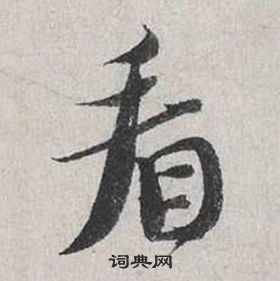 看
词典网